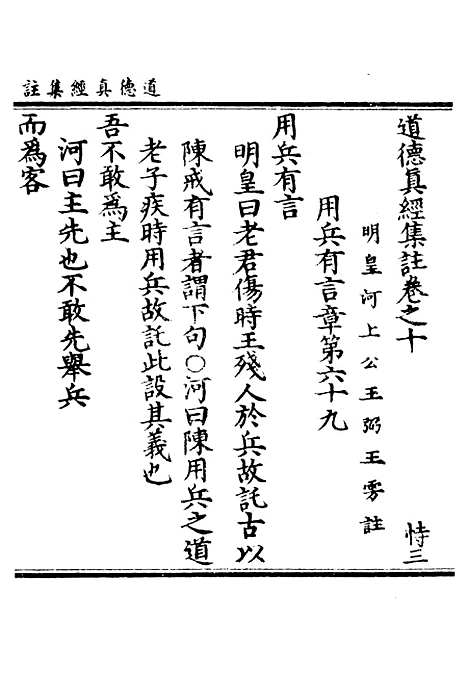 道德真經集註
道德眞經集註卷之十 恃三
明皇河上公王弼王雱註
用兵有言章第六十九
用兵有言
明皇曰老君傷時王殘人於兵故託古以
陳戒有言者謂下句○河曰陳用兵之道
老子疾時用兵故託此設其義也
吾不敢爲主
河曰主先也不敢先舉兵
而爲客